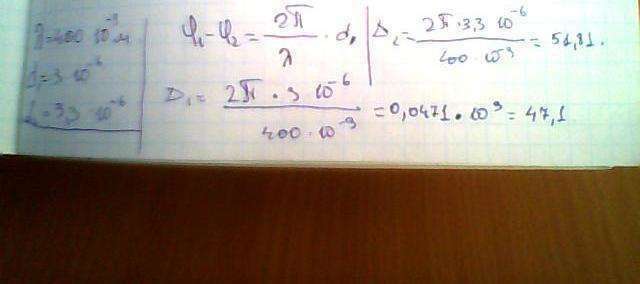 λ=400 10⁻⁹м
d₁=3 10⁻⁶
d₂=3,3 10⁻⁶
φ₁-φ₂ = 2π/λ · d₁
Δ₂ = 2π·3,3 10⁻⁶ / 400·10⁻⁹ = 51,81.
Δ₁ = 2π · 3 10⁻⁶ / 400·10⁻⁹ = 0,0471·10³ = 47,1